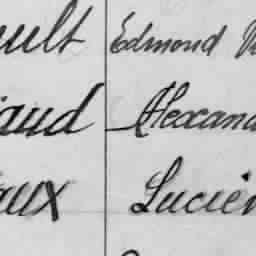 ult Edmond
aud Alexand
aux Lucien